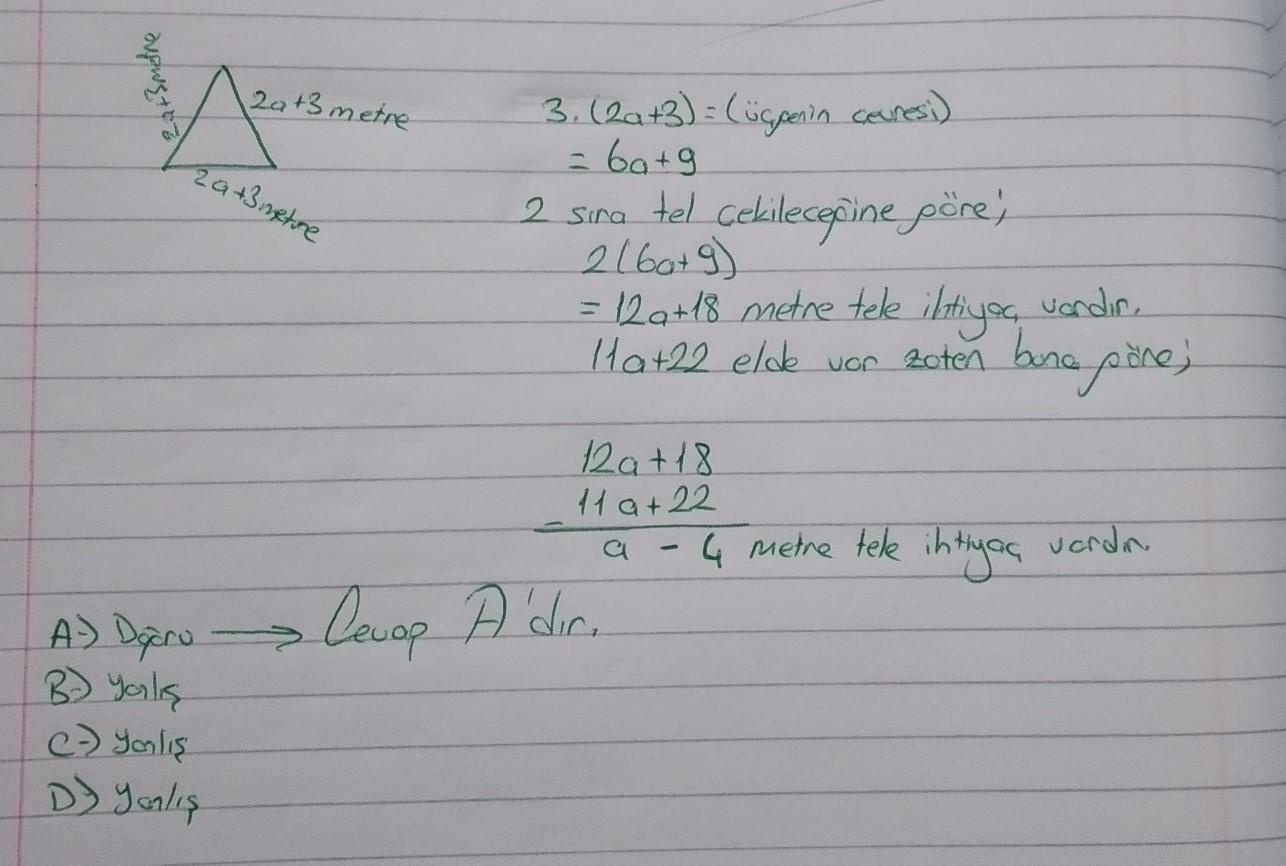 2a+3 metre
2a+3 metre
2a+3 metre
3. (2a+3) = (üçgenin çevresi)
= 6a+9
2 sıra tel çekileceğine göre;
2(6a+9)
= 12a+18 metre tele ihtiyaç vardır.
11a+22 elde var zaten buna göre;
12a+18
- 11a+22
a - 4 metre tele ihtiyaç vardır.
A-) Doğru → Cevap A'dır.
B-) Yanlış
C-) Yanlış
D-) Yanlış